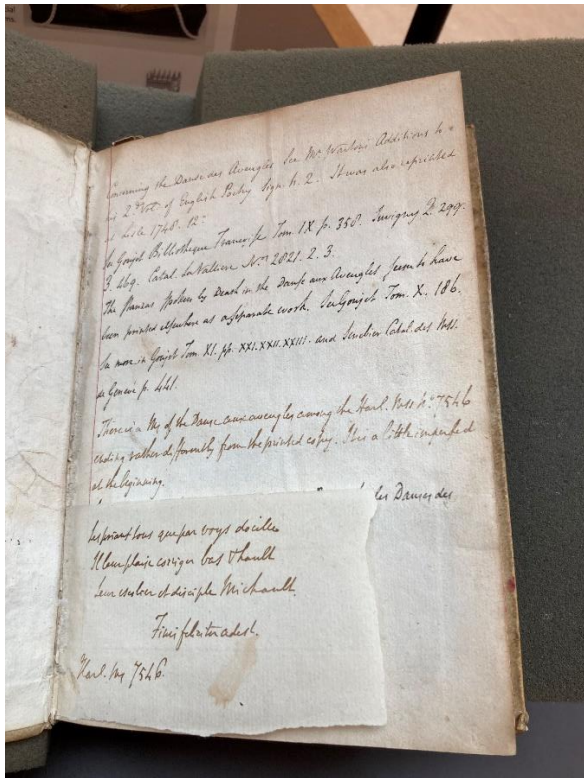 Concerning the Danse des Avengles See Mr. Wartons Additions to
2d. Vol. of English Poetry Sign. h. 2. It was also reprinted
at Lisle 1748. 12o
See Goujet Bibliotheque Francoise Tom. IX p. 358. Juvigny 2. 299.
3. 469. Catal. La Valliere No. 2021. 2. 3.
The Stanzas spoken by Death in the Danse aux Avengles seem to have
been printed elsewhere as a separate work. See Goujet Tom. X. 186.
See more in Goujet Tom. XI. pp. XXI. XXII. XXIII. and Senebier Catal. des Mss.
de Geneve p. 441.
There is a Ms of the Danse aux avengles among the Harl. Mss No. 7546
ending rather differently from the printed copy. It is a little imperfect
at the beginning.
des Danses des
Les priant tous que par voys docille
Il leur plaise coriger bas & hault
Leur escolier et disciple Michault.
Finis feliciter adest.
Harl. Ms 7546.